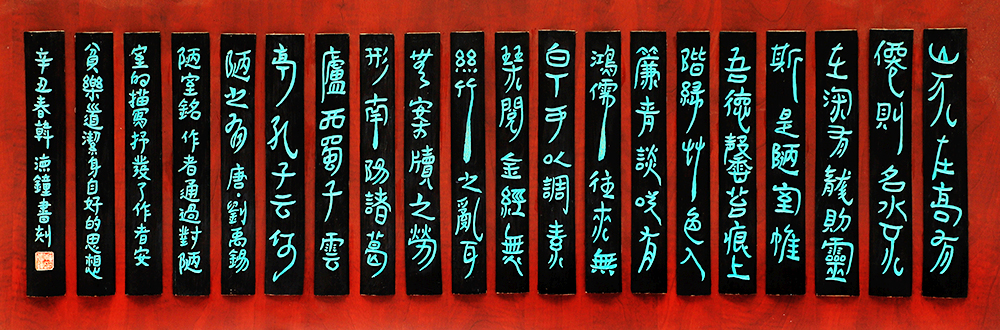 山不在高有
僊則名水不
在深有龍則靈
斯是陋室惟
吾德馨苔痕上
階緑艸色入
簾青談咲有
鴻儒往來無
白丁可以調素
琴閱金經無
絲竹之亂耳
無案牘之勞
形南陽諸葛
廬西蜀子雲
亭孔子云何
陋之有 唐·劉禹錫
陋室銘 作者通過對陋
室的描寫抒發了作者安
貧樂道潔身自好的思想
辛丑春韓德鐘書刻